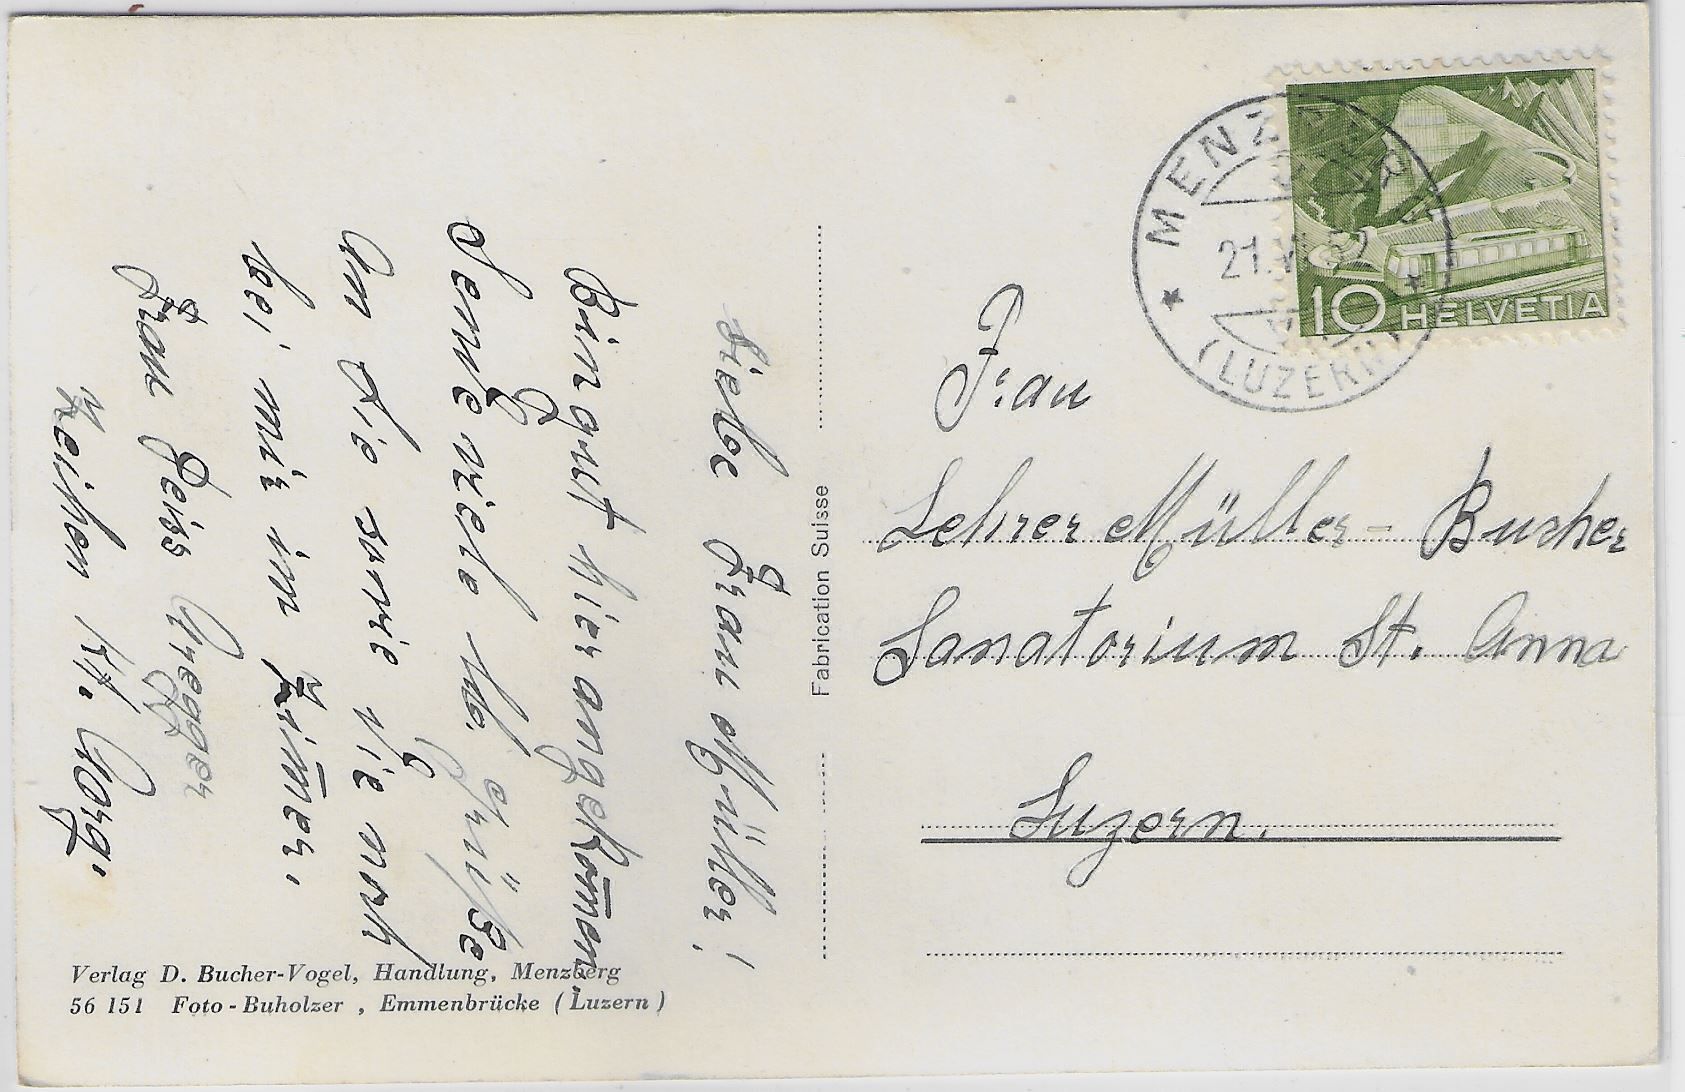 Liebe Frau Müller!
Bin gut hier angekom̅en,
Sende viele hb. Grüsse
An Sie sowie Sie noch
bei mir im Zim̅er.
Frau Geiss Gregger
Zeihen Kt. Aarg.
Verlag D. Bucher-Vogel, Handlung, Menzberg
56 151 Foto-Buholzer, Emmenbrücke (Luzern)
Fabrication Suisse
MENZBERG
21.V
(LUZERN)
10 HELVETIA
Frau
Lehrer Müller-Bucher
Sanatorium St. Anna
Luzern.